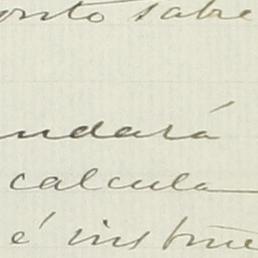 onto sabe
ndará
calcula
é instru